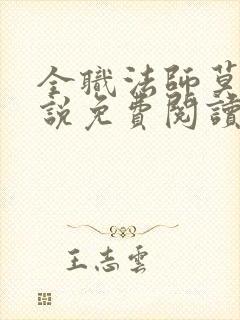 全職法師莫
説免費閱讀
王志雲